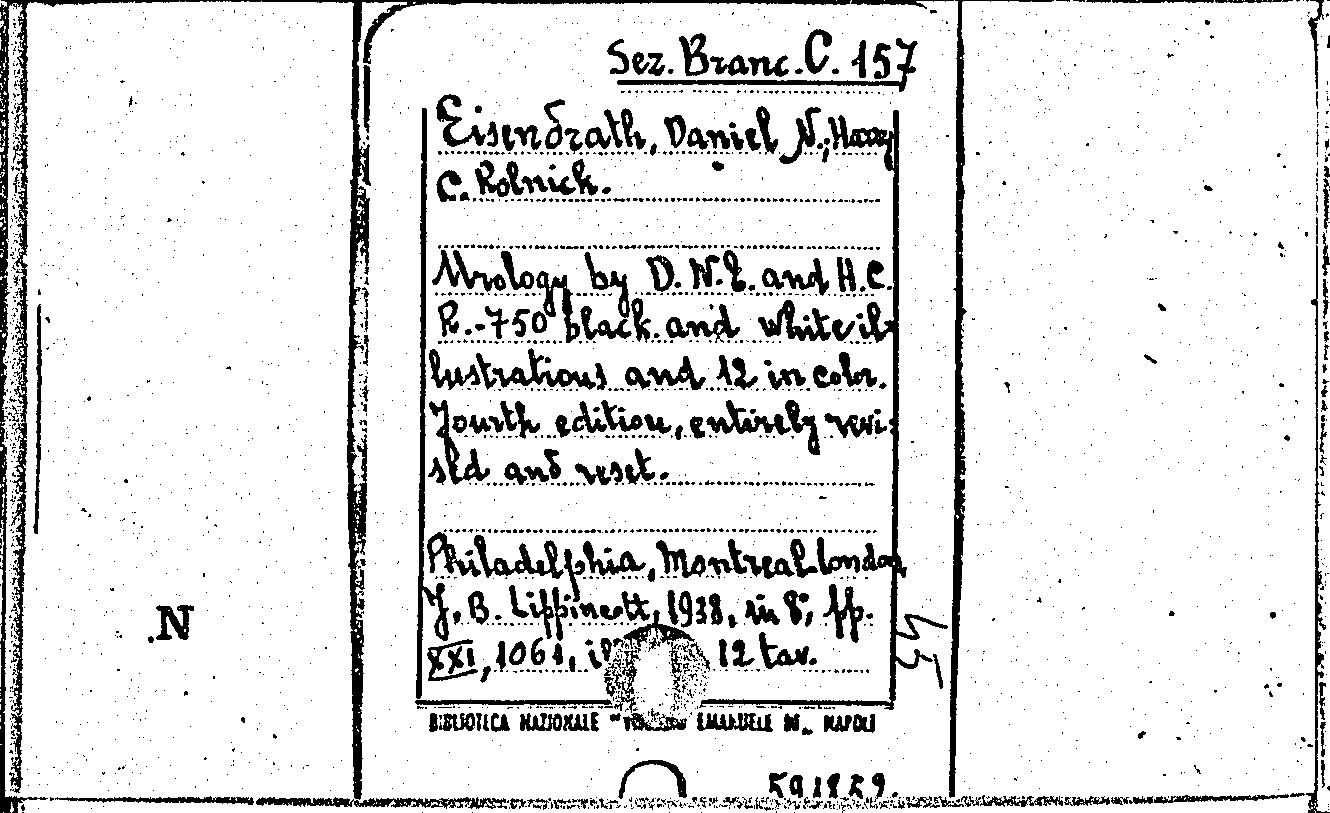 Sez. Branc. C. 157
Eisendrath, Daniel N.; Harry
C. Rolnick.
Urology by D. N. E. and H. C.
R. - 750 black and white il-
lustrations and 12 in color.
Fourth edition, entirely revi-
sed and reset.
Philadelphia, Montreal London
J. B. Lippincott, 1938, in 8°, pp.
XXI, 1061, 12 tav.
BIBLIOTECA NAZIONALE EMANUELE III„ NAPOLI
.N